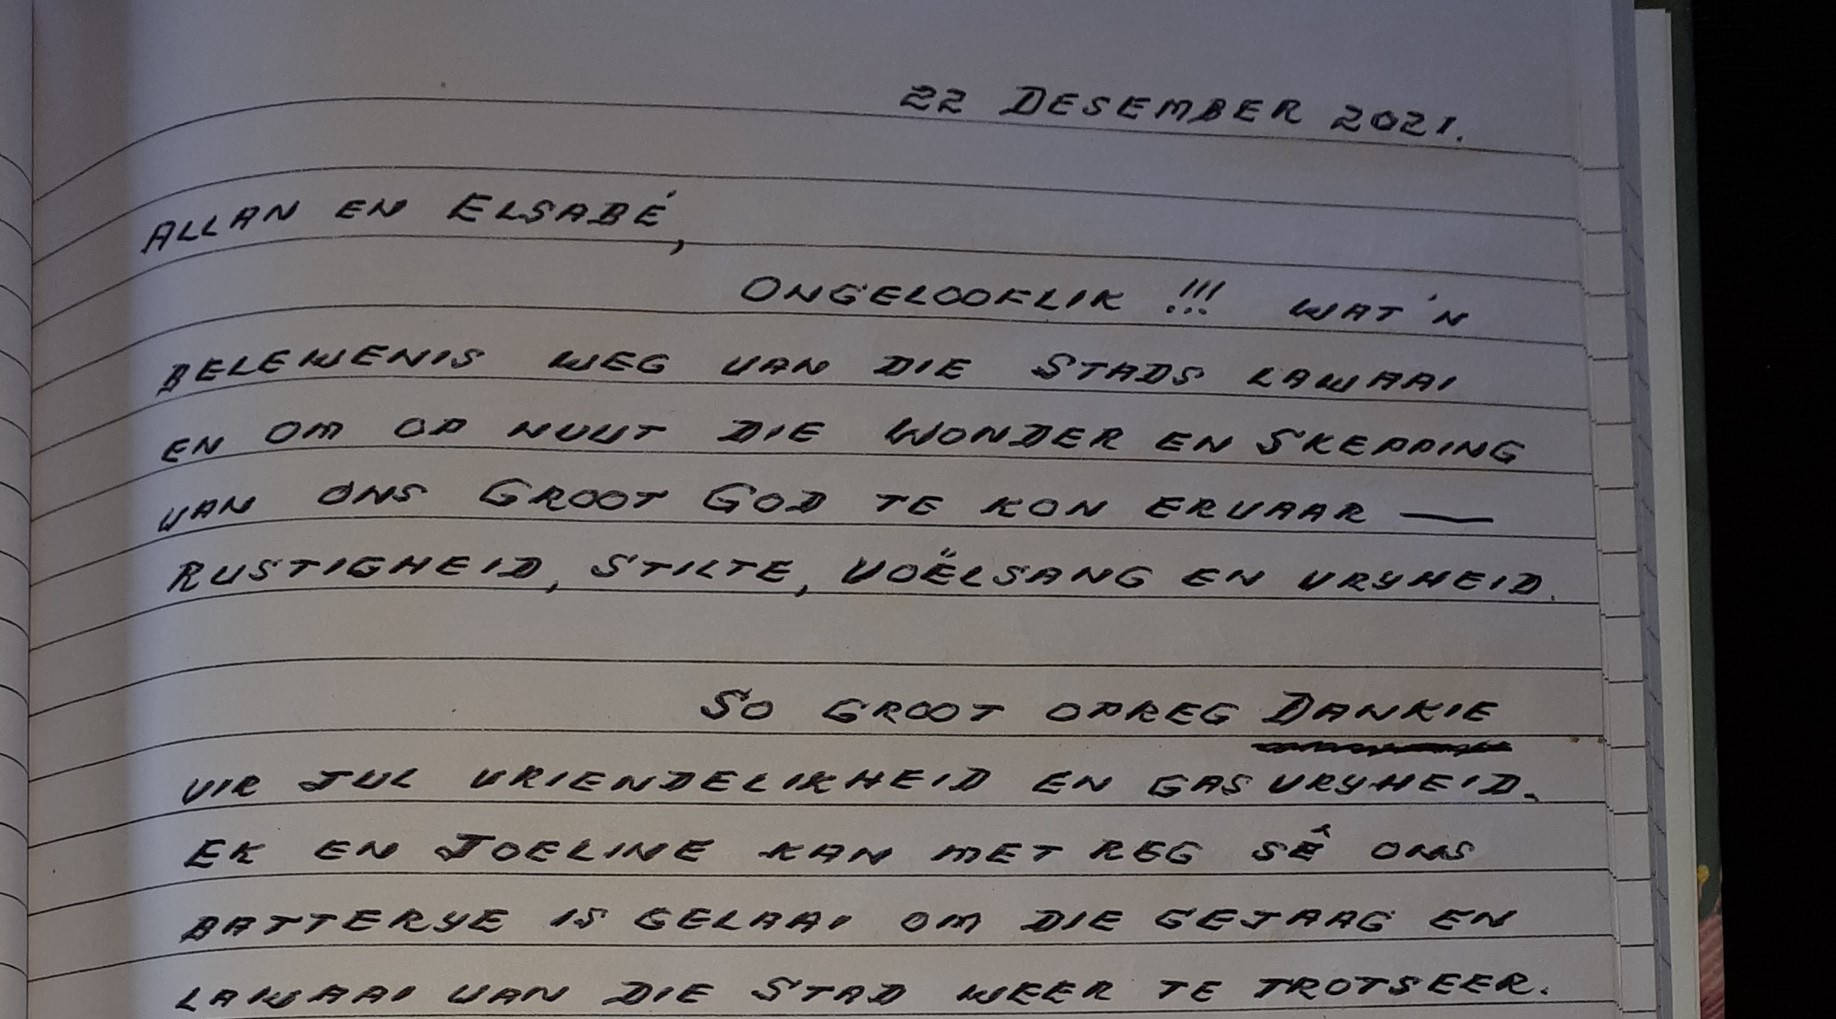 22 DESEMBER 2021.
ALLAN EN ELSABÉ,
ONGELOOFLIK !!! WAT 'N
BELEWENIS WEG VAN DIE STADS LAWAAI
EN OM OP NUUT DIE WONDER EN SKEPPING
VAN ONS GROOT GOD TE KON ERVAAR —
RUSTIGHEID, STILTE, VOËLSANG EN VRYHEID.
SO GROOT OPREG DANKIE
VIR JUL VRIENDELIKHEID EN GASVRYHEID.
EK EN JOELINE KAN MET REG SÊ ONS
BATTERYE IS GELAAI OM DIE GEJAAG EN
LAWAAI VAN DIE STAD WEER TE TROTSEER.